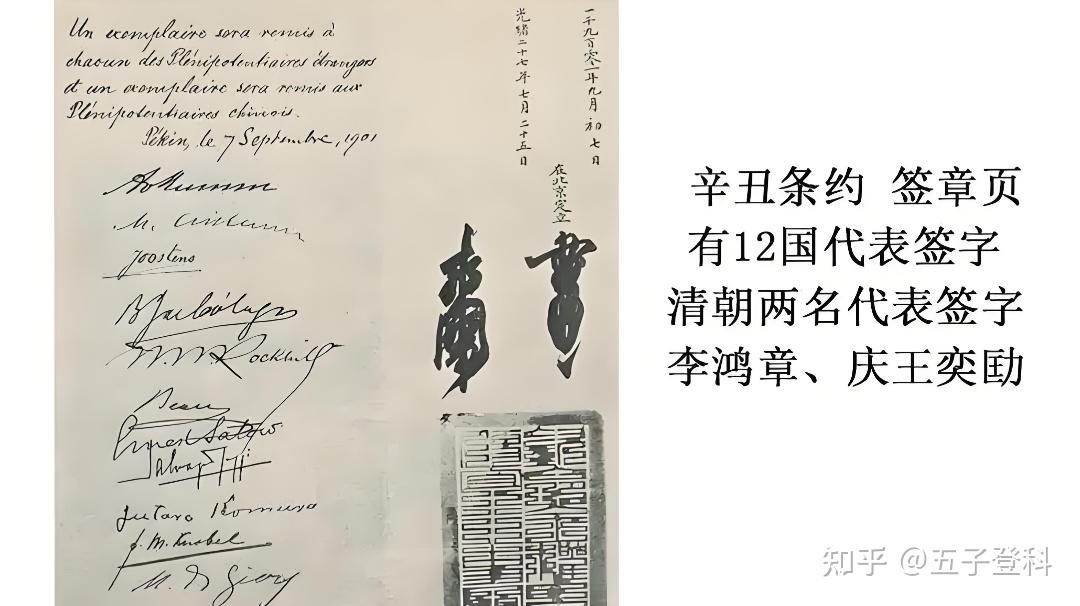 Un exemplaire sera remis à
chacun des Plénipotentiaires étrangers
et un exemplaire sera remis aux
Plénipotentiaires chinois.
Pékin, le 7 Septembre, 1901
Joostens
W. W. Rockhill
Beau
Ernest Satow
Salvago Raggi
Jutaro Komura
F. M. Knobel
M. de Giers
一千九百零一年九月初七日
光緒二十七年七月二十五日
在北京定立
辛丑条约 签章页
有12国代表签字
清朝两名代表签字
李鸿章、庆王奕劻
知乎 @五子登科